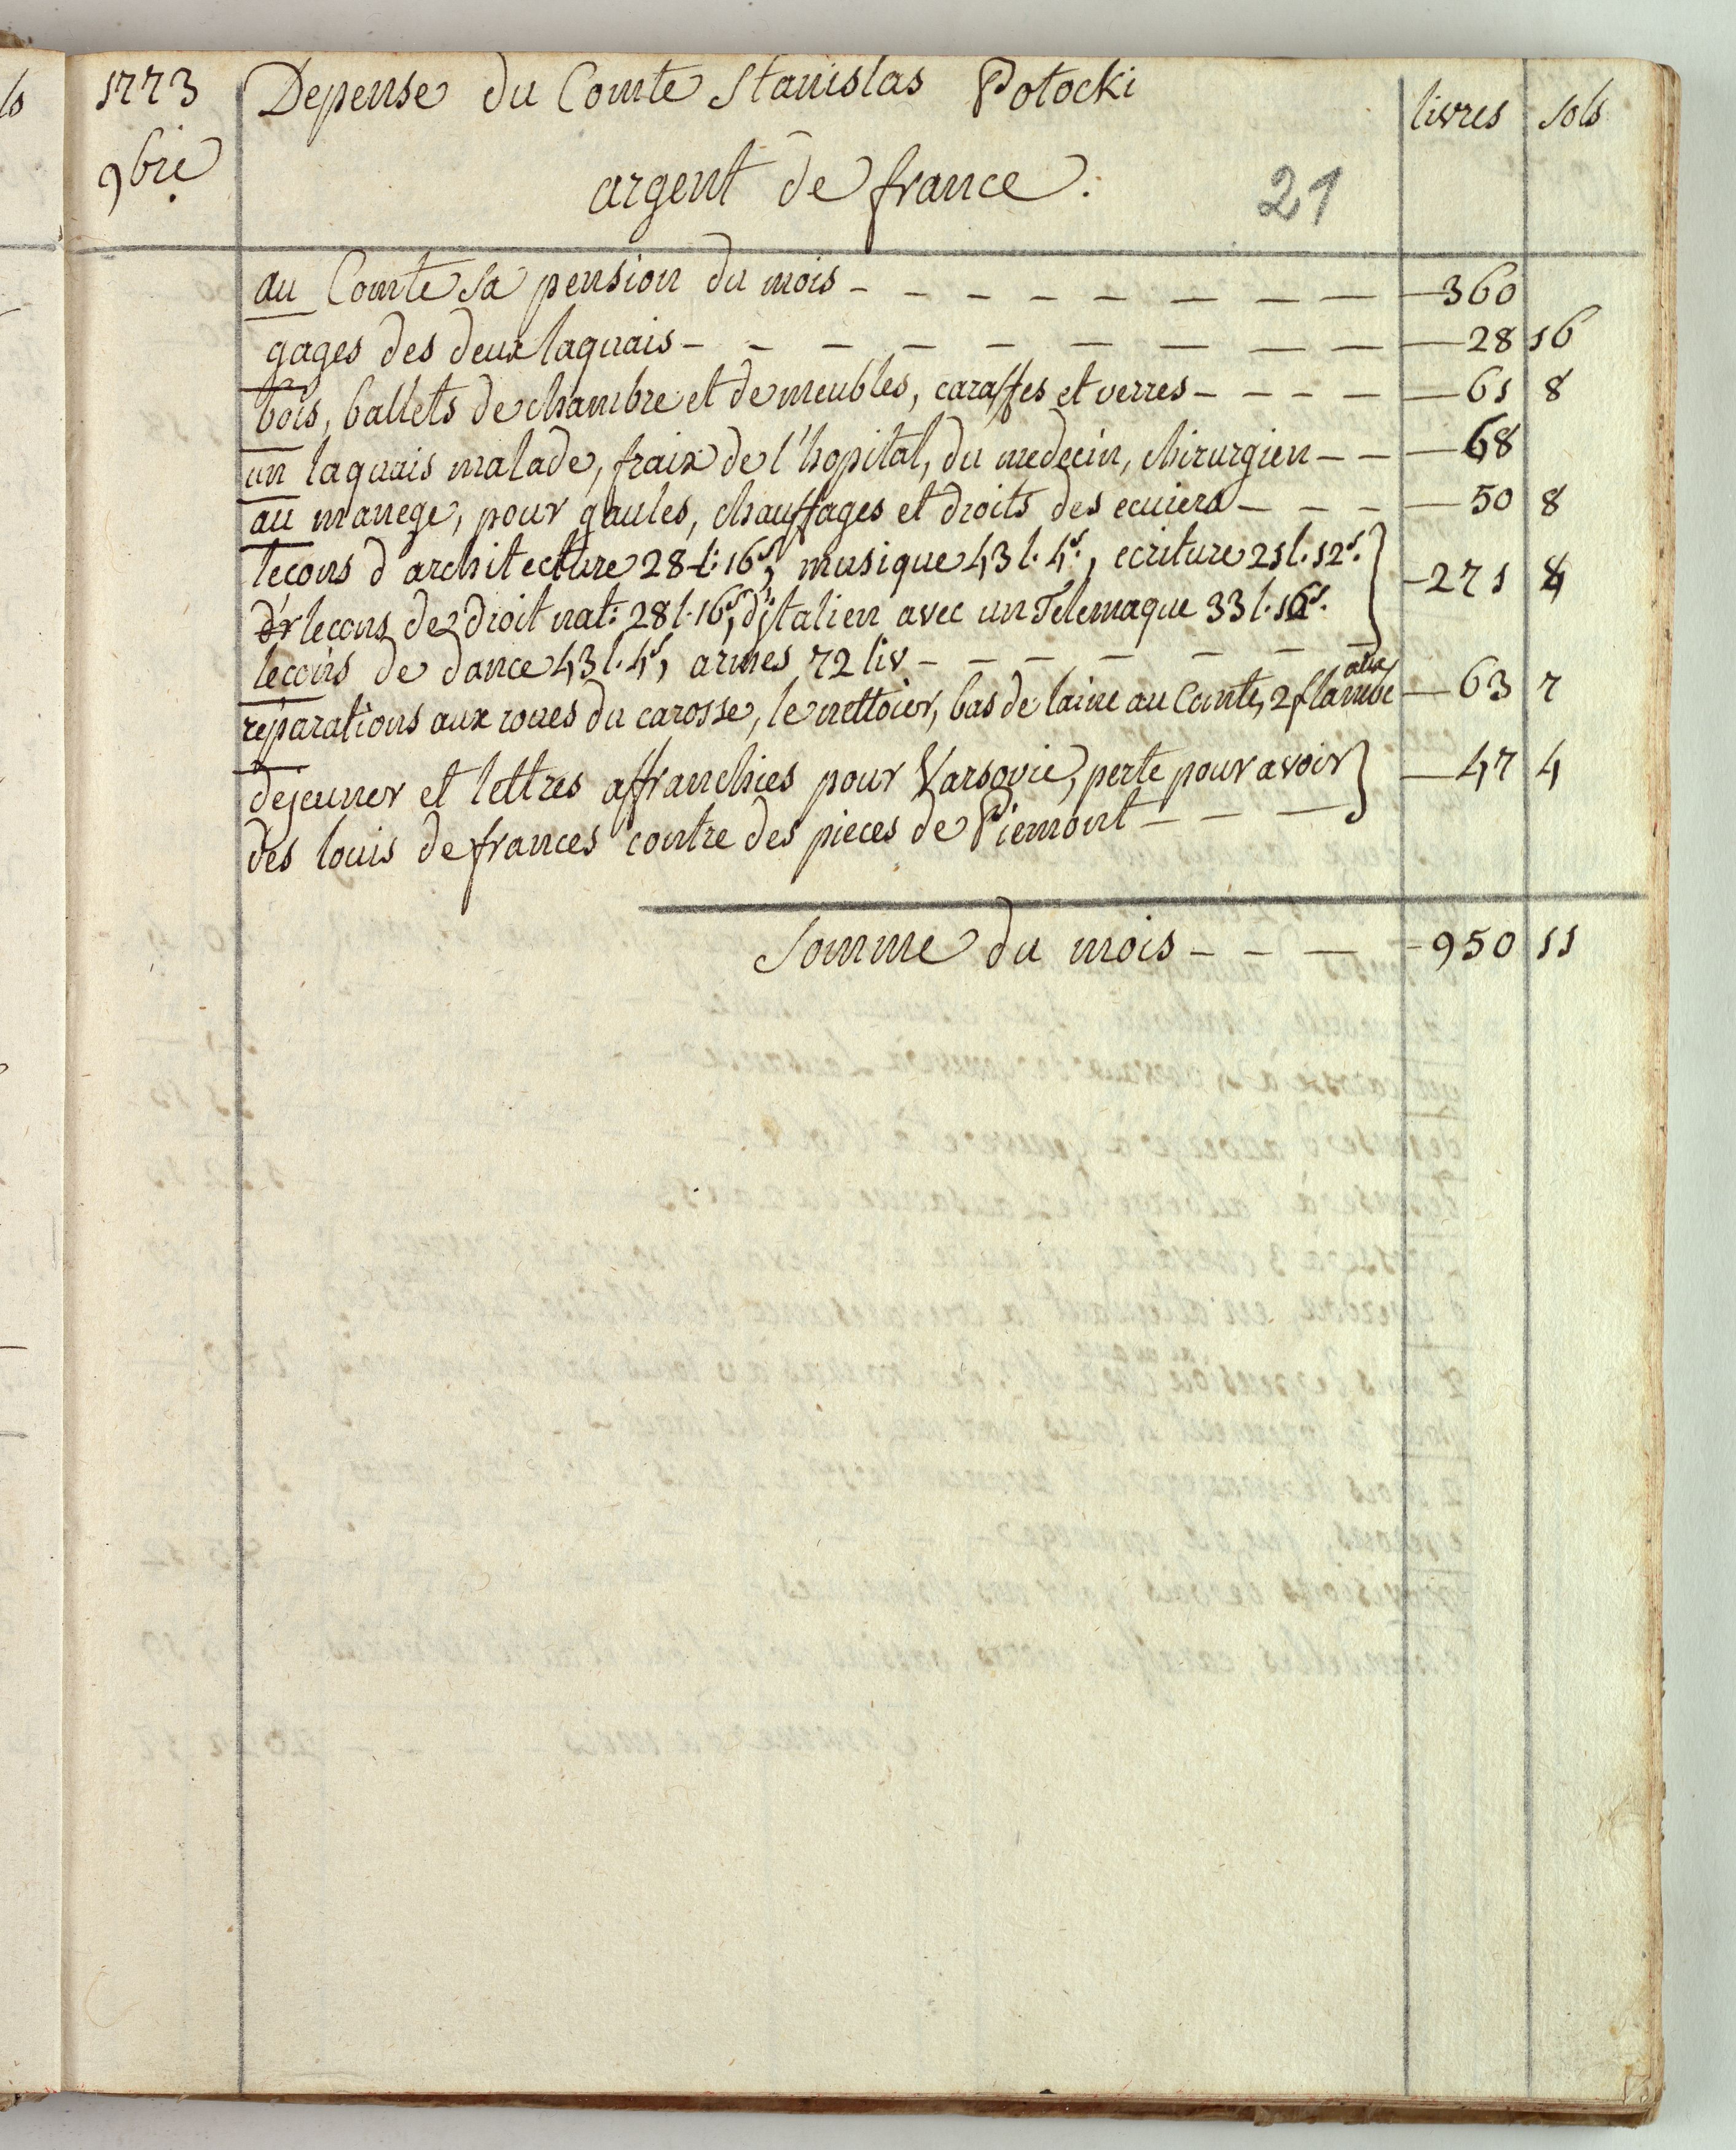 1773 Depense du Comte Stanislas Potocki livres sols
9bre argent de france. 21
au Comte sa pension du mois - - - - - - - - - 360
gages des deux laquais - - - - - - - - - 28 16
bois, ballets de chambre et de meubles, caraffes et verres - - - - 61 8
un laquais malade, fraix de l'hopital, du medecin, chirurgien - - 68
au manege, pour gaules, chauffages et droits des ecuiers - - - 50 8
lecons d'architecture 28 l: 16s, musique 43 l. 4s, ecriture 21 l. 12s.
lecons de droit nat: 28 l. 16s, d'italien avec un Telemaque 33 l. 16s. 271 8
lecons de dance 43 l. 4s, armes 72 liv - - - - - -
reparations aux roues du carosse, le nettoier, bas de laine au Comte, 2 flambeaux 63 7
dejeuner et lettres affranchies pour Varsovie, perte pour avoir 47 4
des louis de frances contre des pieces de Piemont - - -
Somme du mois - - - 950 11